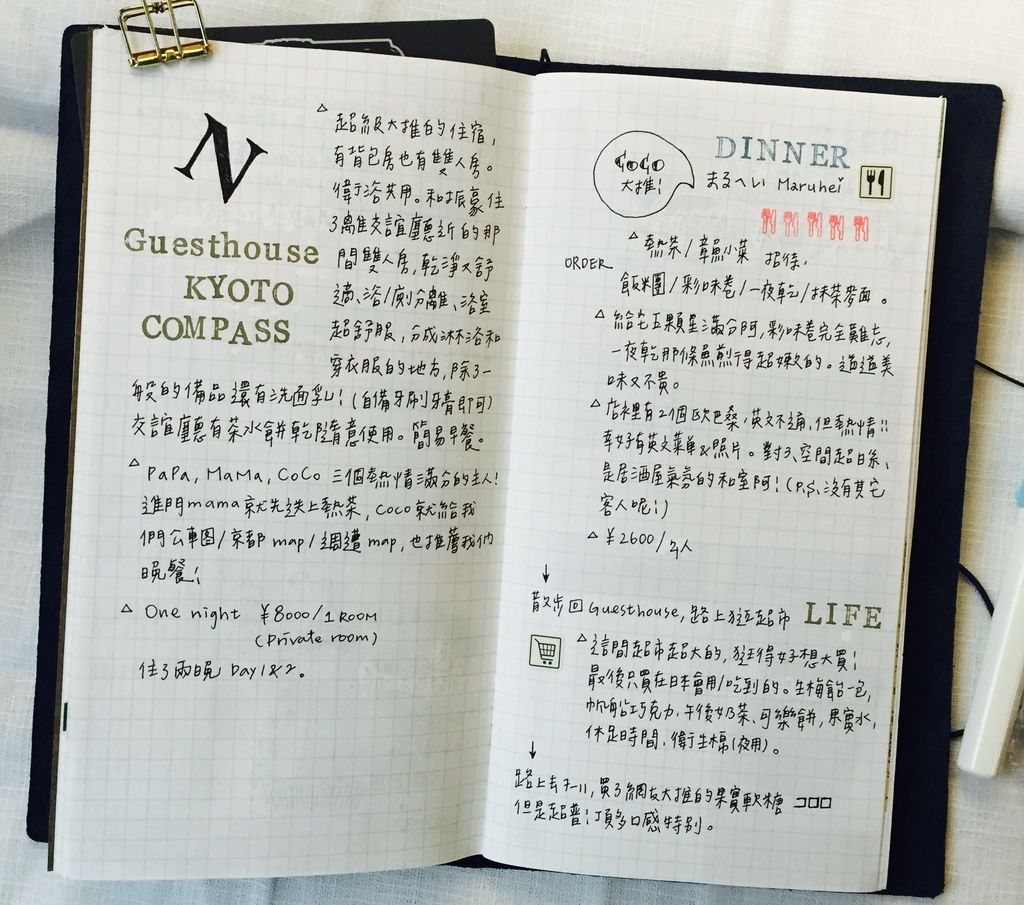 N
Guesthouse
KYOTO
COMPASS
△ 超級大推的住宿,
有背包房也有雙人房。
衛浴共用。和振豪住
了離交誼廳近的那
間雙人房,乾淨又舒
適、浴/廁分離、浴室
超舒服,分成淋浴和
穿衣服的地方,除了一
般的備品還有洗面乳!(自備牙刷牙膏即可)
交誼廳有茶水餅乾隨意使用。簡易早餐。
△ PaPa, MaMa, CoCo 三個熱情滿分的主人!
進門mama就先送上熱茶, coco就給我
們公車图/京都map/週遭map,也推薦我們
晚餐!
△ One night ¥8000/1 ROOM
(Private room)
住了兩晚 Day1&2。
CoCo
大推!
DINNER
まるへい Maruhei
△ 熱茶/章魚小菜 招待.
ORDER
飯糰/彩味卷/一夜乾/抹茶麥面。
△ 給它五顆星滿分阿,彩味卷完全難忘,
一夜乾那條魚煎得超嫩的。道道美
味又不貴。
△ 店裡有2個歐巴桑,英文不通,但熱情!!
幸好有英文菜單&照片。對了、空間超日系、
是居酒屋氣氛的和室阿!(P.S.沒有其它
客人呢!)
△ ¥2600/2人
↓
散步回Guesthouse,路上逛超市 LIFE
△ 這間超市超大的,逛得好想大買!
最後只買在日本會用/吃到的。生梅飴一包,
帆船巧克力.午後奶茶、可樂餅,果實水,
休足時間.衛生棉(夜用)。
↓
路上去7-11,買了網友大推的果實軟糖 コロロ
但是超普!頂多口感特別。